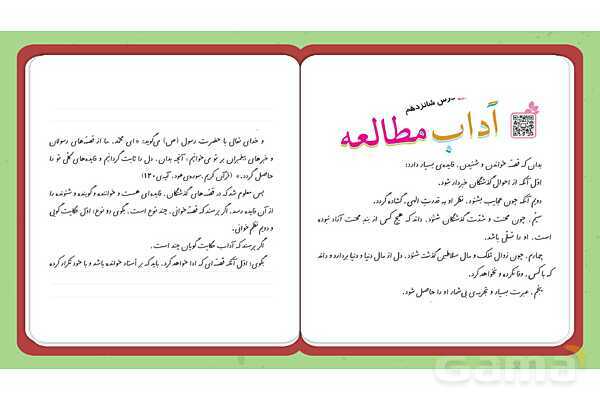 درس شانزدهم
آداب مطالعه
بدان که قصّه خواندن و شنیدن، فایده‌ی بسیار دارد:
اوّل آنکه از احوال گذشتگان خبردار شود.
دوم آنکه چون عجایب بشنود، نظر او به قدرت الهی گشاده گردد.
سیّم، چون محنت و شدّت گذشتگان شنود، داند که هیچ کس از بند محنت آزاد نبوده
است، او را تسلّی باشد.
چهارم، چون زوال مُلک و مال سلاطین گذشته شنود، دل از مال دنیا و دنیا بردارد و داند
که با کس، وفا نکرده و نخواهد کرد.
پنجم، عبرت بسیار و تجربه‌ی بی‌شمار او را حاصل شود.
و خدای تعالی با حضرت رسول (ص) می‌گوید: «ای محمّد، ما از قصّه‌های رسولان
و خبرهای پیغمبران بر تو می‌خوانیم، آنچه بدان، دل را ثابت گردانیم و فایده‌های کلّی تو را
حاصل گردد.» (قرآن کریم، سوره‌ی هود، آیه‌ی ۱۲۰)
پس معلوم شد که در قصّه‌های گذشتگان، فایده‌ای هست و خواننده و گوینده و شنونده را
از آن فایده رسد. اگر پرسند که قصّه‌خوانی، چند نوع است، بگوی دو نوع: اوّل حکایت گویی
و دوم نظم خوانی.
اگر پرسند که آداب حکایت گویان چند است.
بگوی: اوّل آنکه قصّه‌ای که ادا خواهد کرد، باید که بر استاد خوانده باشد و با خود تکرار کرده
Gama